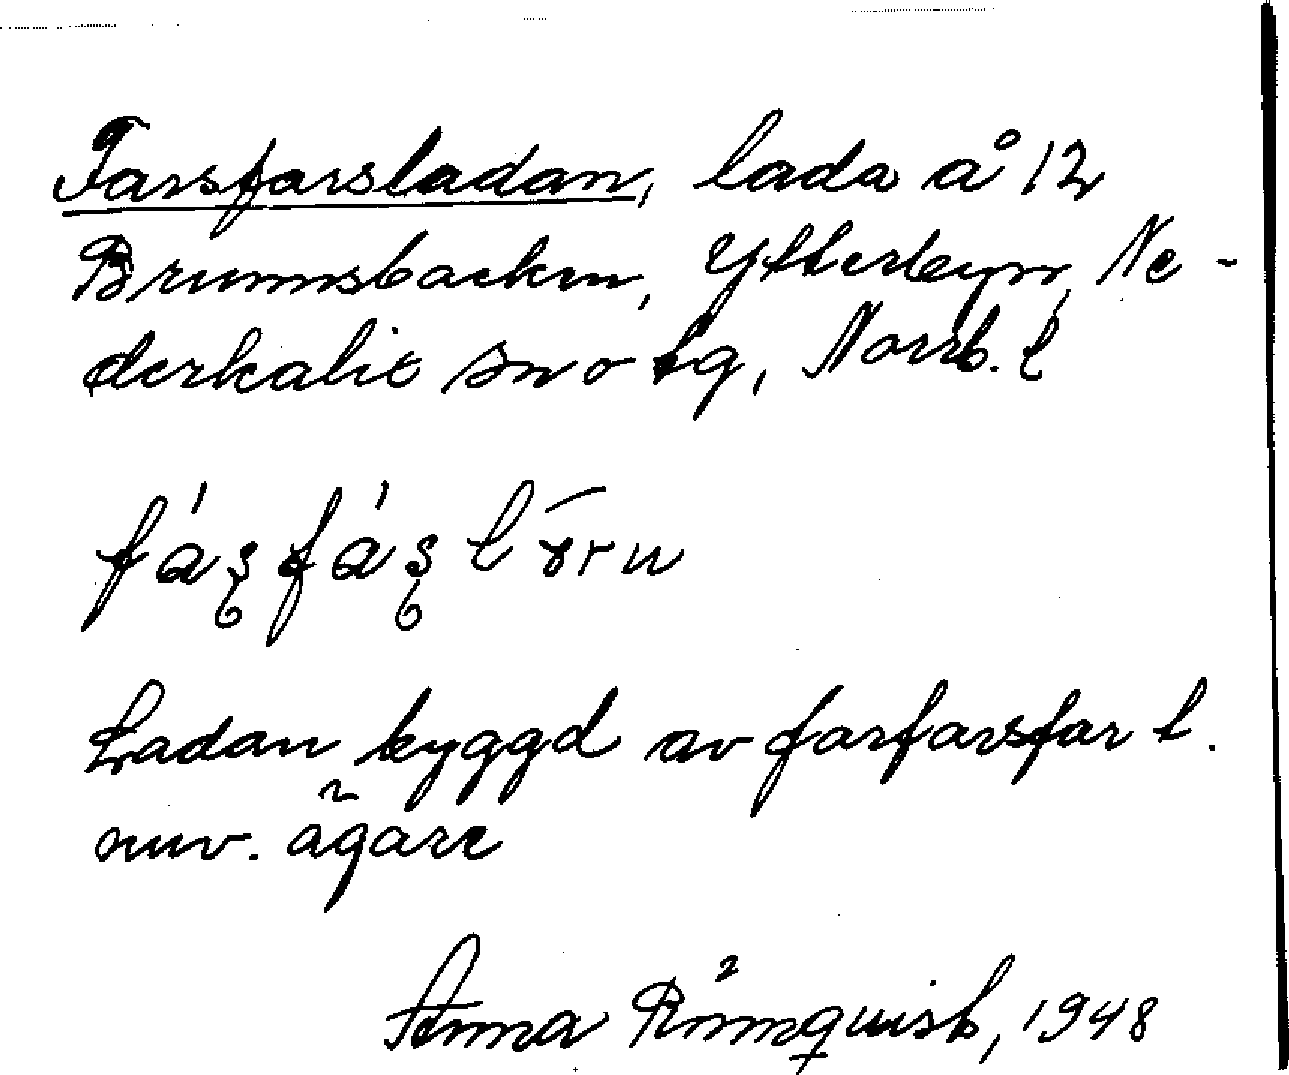 Farsfarsladan, lada å 12
Brunnsbacken, Ytterbyn, Ne-
derkalix sn o tg, Norrb. l
Ladan byggd av farfarsfar t.
nuv. ägare
Anna Rönnquist, 1948